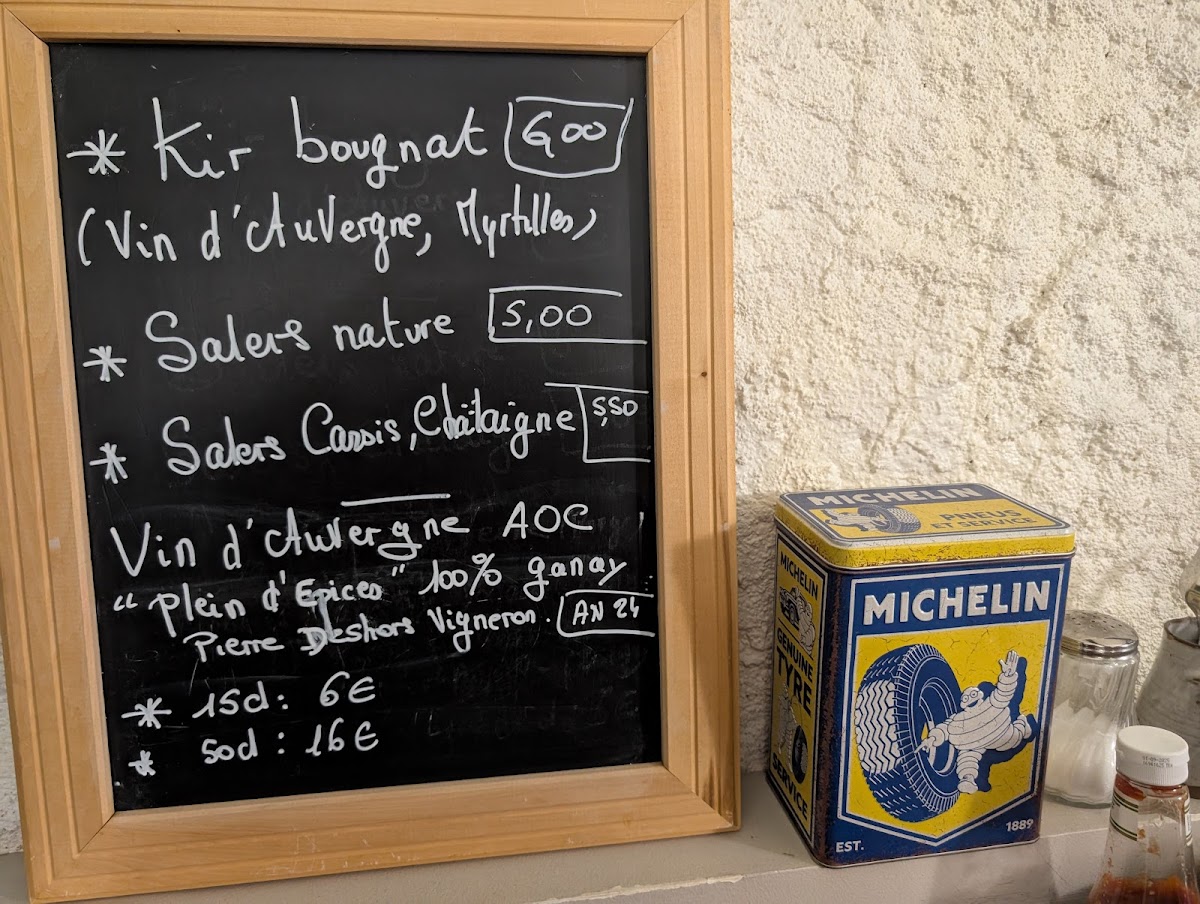 * Kir bougnat 6,00
(Vin d'Auvergne, Myrtilles)
* Salers nature 5,00
* Salers Cassis, Châtaigne 5,50
Vin d'Auvergne AOC
"plein d'Epices" 100% gamay
Pierre Deshors Vigneron. AN 24
* 15d: 6€
* 50d: 16€
MICHELIN
PNEUS
ET SERVICE
MICHELIN
GENUINE
TYRE
SERVICE
MICHELIN
EST.
1889